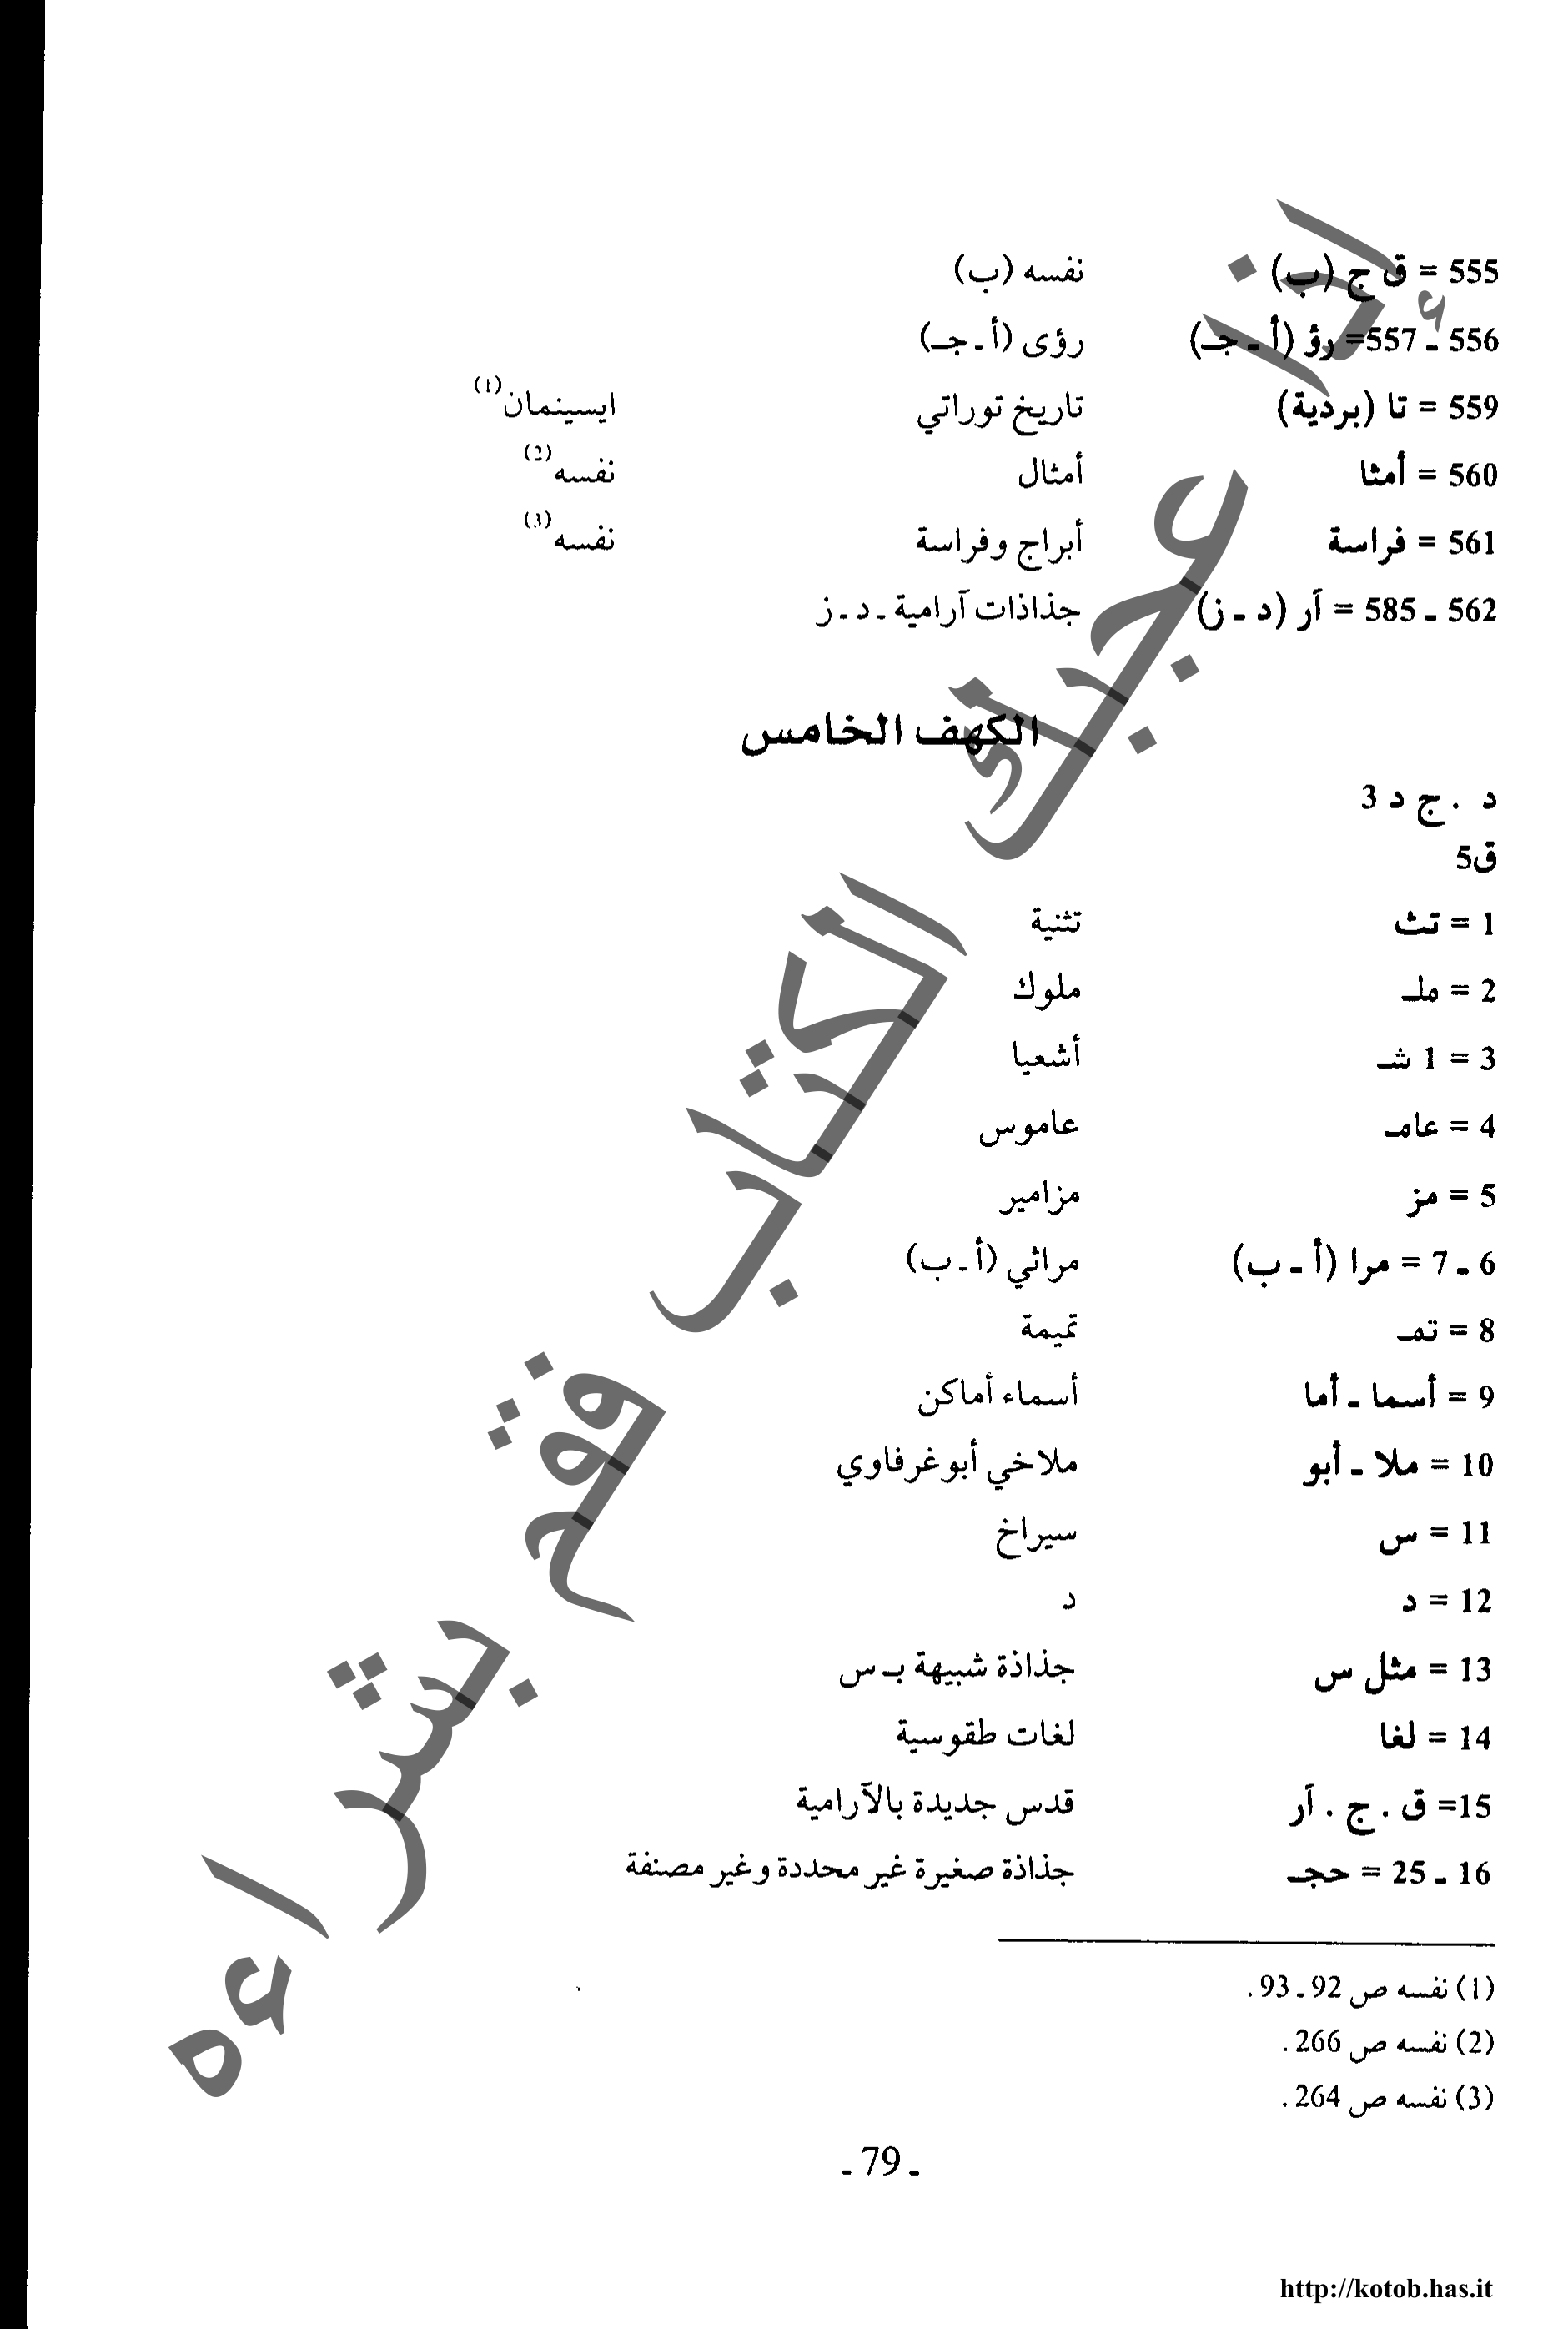 555 = ق ج (ب) نفسه (ب)
556 ـ 557= رؤ (أ ـ جـ) رؤى (أ ـ جـ)
559 = تا (بردية) تاريخ توراتي ايسينمان(1)
560 = أمثا أمثال نفسه(2)
561 = فراسة أبراج وفراسة نفسه(3)
562 ـ 585 = آر (د ـ ز) جذاذات آرامية ـ د ـ ز
الكهف الخامس
د . ج د 3
ق5
1 = تث تثنية
2 = ملـ ملوك
3 = 1 شـ أشعيا
4 = عامـ عاموس
5 = مز مزامير
6 ـ 7 = مرا (أ ـ ب) مراثي (أ ـ ب)
8 = تمـ تميمة
9 = أسما ـ أما أسماء أماكن
10 = ملا ـ أبو ملاخي أبوغرفاوي
11 = س سيراخ
12 = د د
13 = مثل س جذاذة شبيهة بـ س
14 = لغا لغات طقوسية
15= ق . ج . آر قدس جديدة بالآرامية
16 ـ 25 = حجـ جذاذة صغيرة غير محددة وغير مصنفة
(1) نفسه ص 92 ـ 93 .
(2) نفسه ص 266 .
(3) نفسه ص 264 .
ـ 79 ـ
http://kotob.has.it
إذا أعجبك الكتاب فقم بشراءه